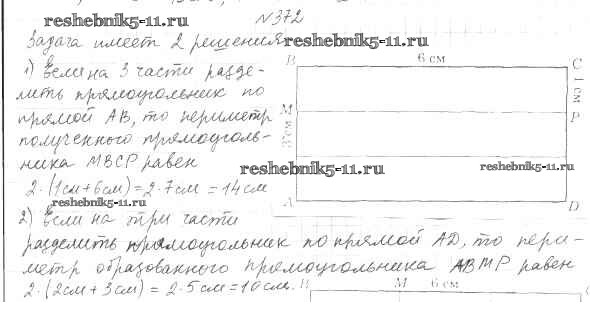 reshebnik5-11.ru
№372
Задача имеет 2 решения.
reshebnik5-11.ru
1) Если на 3 части разде-
лить прямоугольник по
прямой AB, то периметр
полученного прямоуголь-
ника MBCP равен
2·(1см+6см)=2·7см=14см
B
6 см
C
1 см
M
P
3 см
A
D
reshebnik5-11.ru
reshebnik5-11.ru
reshebnik5-11.ru
2) Если на три части
разделить прямоугольник по прямой AD, то пери-
метр образованного прямоугольника ABMP равен
2·(2см+3см)=2·5см=10см.
B
M
6 см